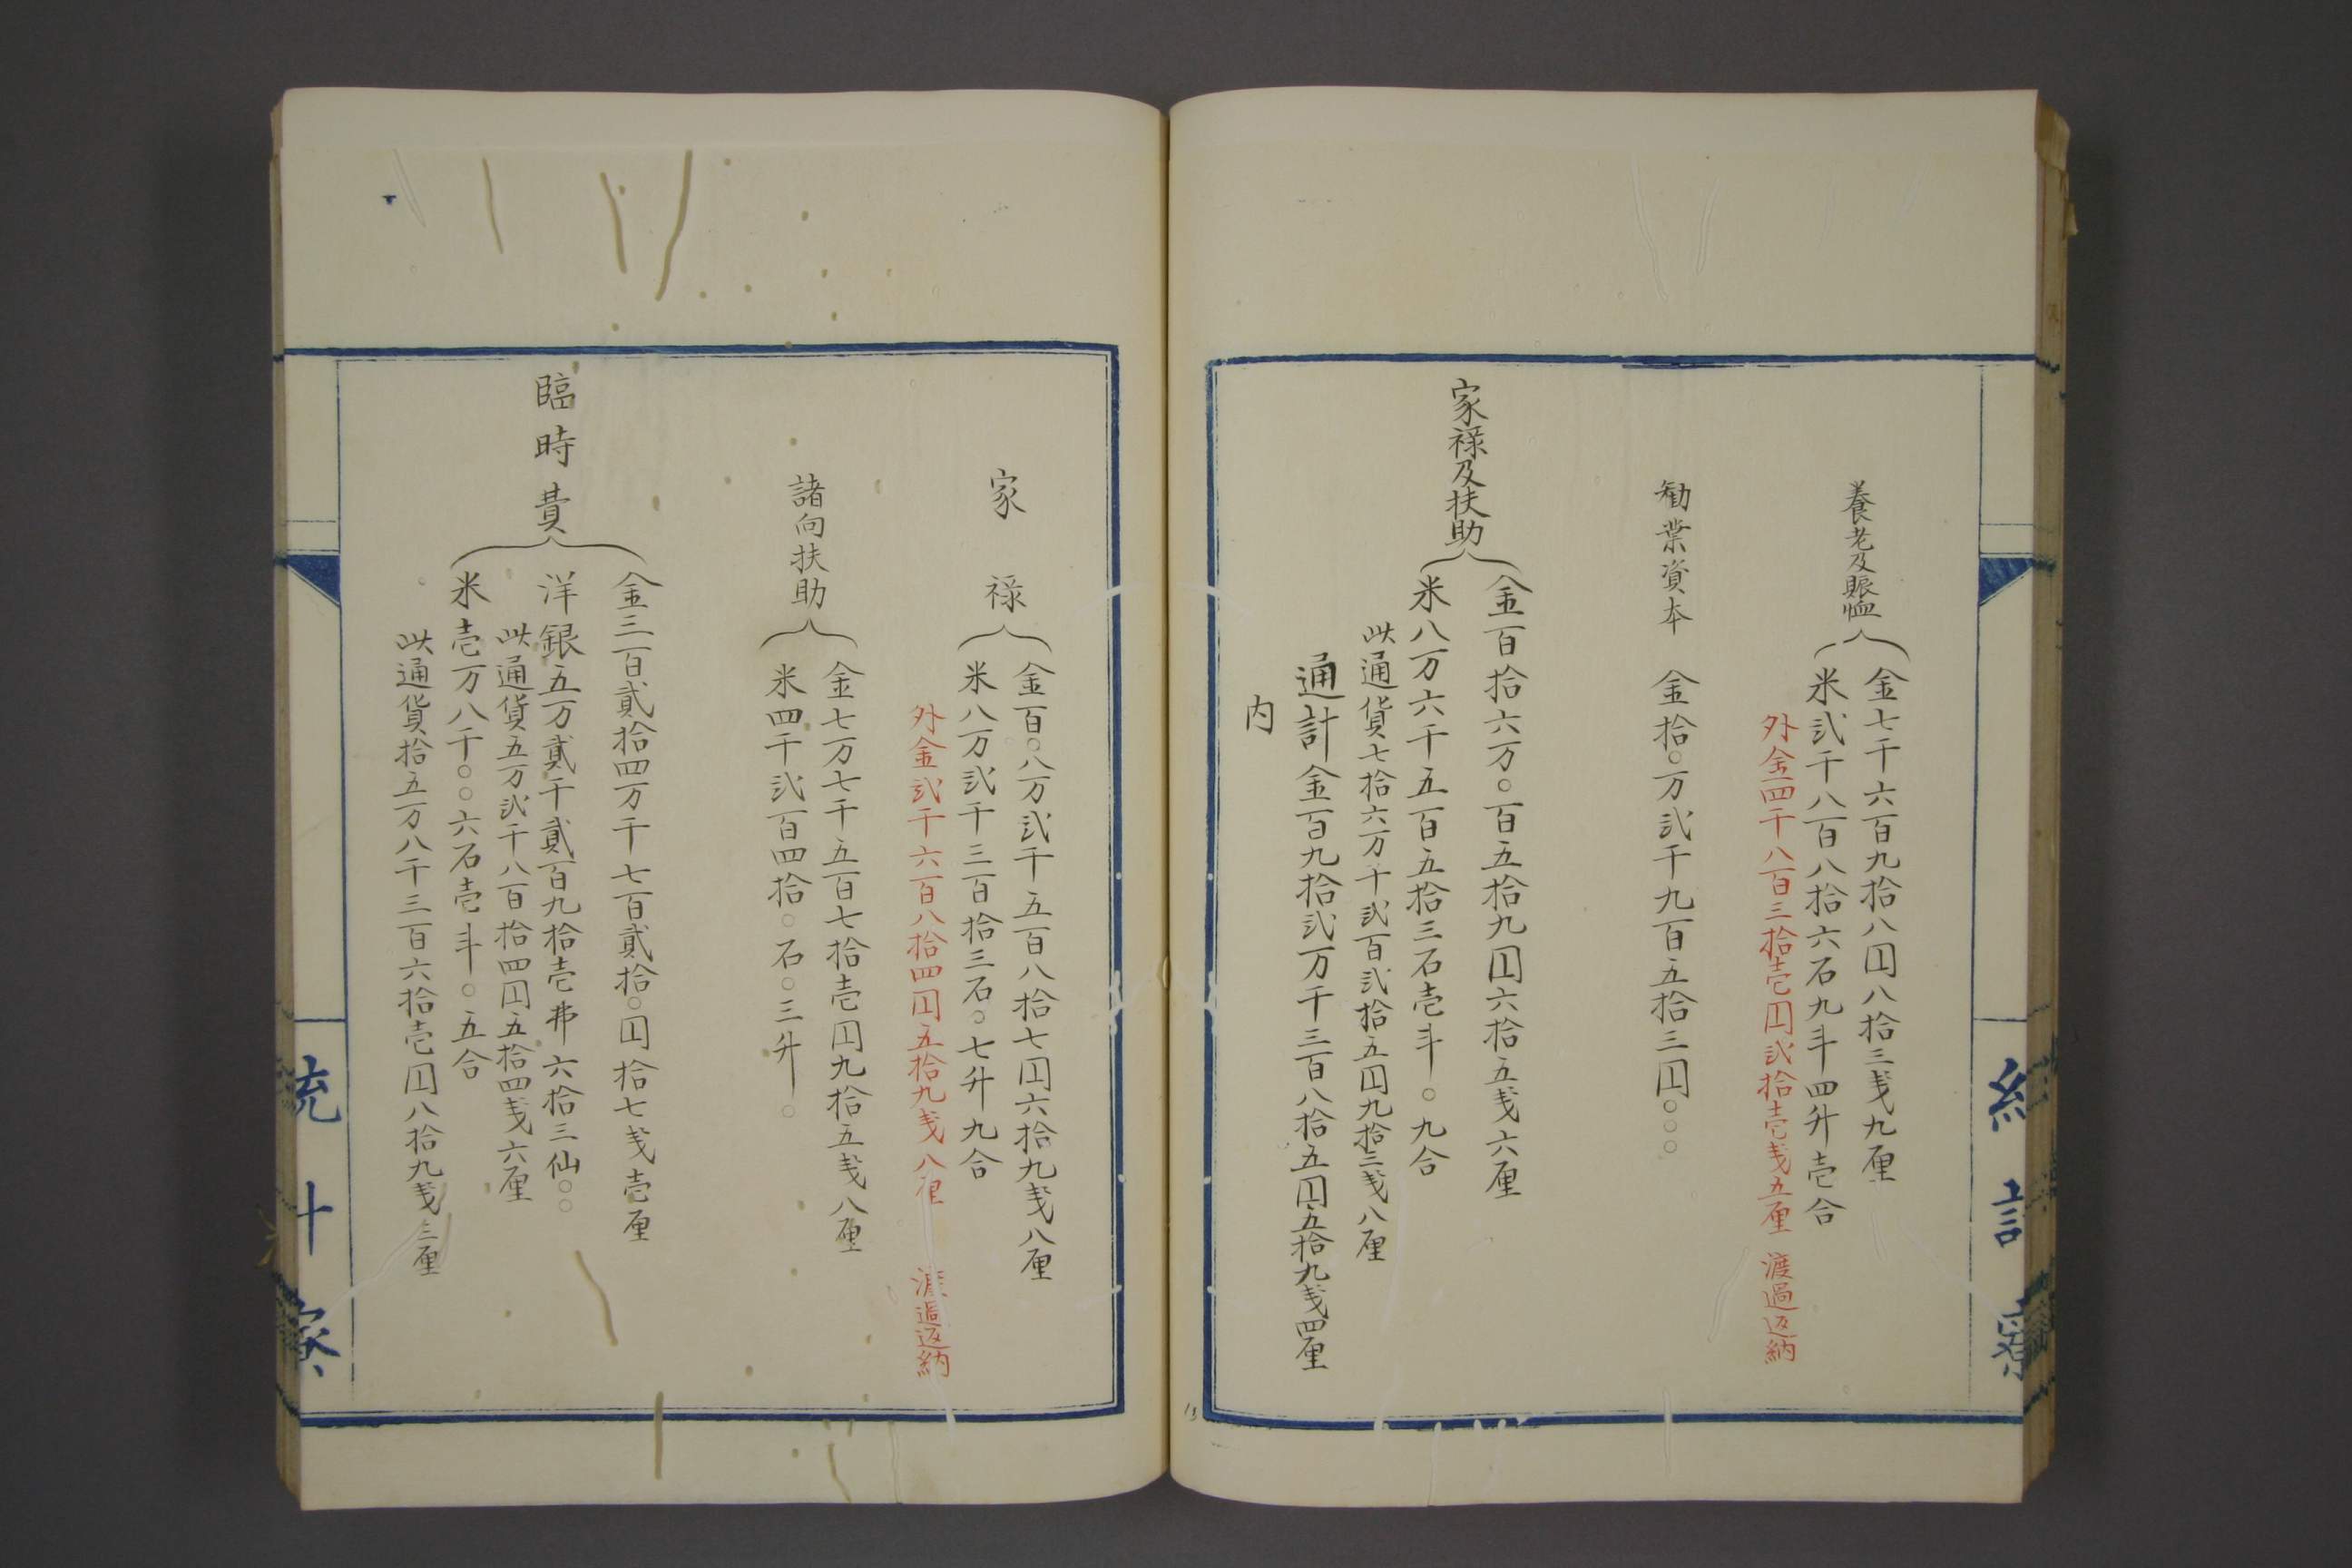 養老及賑恤
金七千六百九拾八円八拾三戋九厘
米弐千八百八拾六石九斗四升壱合
外金四千八百三拾壱円弐拾壱戋五厘 渡過返納
勧業資本 金拾○万弐千九百五拾三円○○○
家禄及扶助
金百拾六万○百五拾九円六拾五戋六厘
米八万六千五百五拾三石壱斗○九合
此通貨七拾六万千弐百弐拾五円九拾三戋八厘
通計金百九拾弐万千三百八拾五円五拾九戋四厘
内
家禄
金百○八万弐千五百八拾七円六拾九戋八厘
米八万弐千三百拾三石○七升九合
外金弐千六百八拾四円五拾九戋八厘 渡過返納
諸向扶助
金七万七千五百七拾壱円九拾五戋八厘
米四千弐百四拾○石○三升○
臨時費
金三百貳拾四万千七百貳拾○円拾七戋壱厘
洋銀五万貳千貳百九拾壱弗六拾三仙○○
此通貨五万弐千八百拾四円五拾四戋六厘
米壱万八千○○六石壱斗○五合
此通貨拾五万八千三百六拾壱円八拾九戋三厘
統計寮